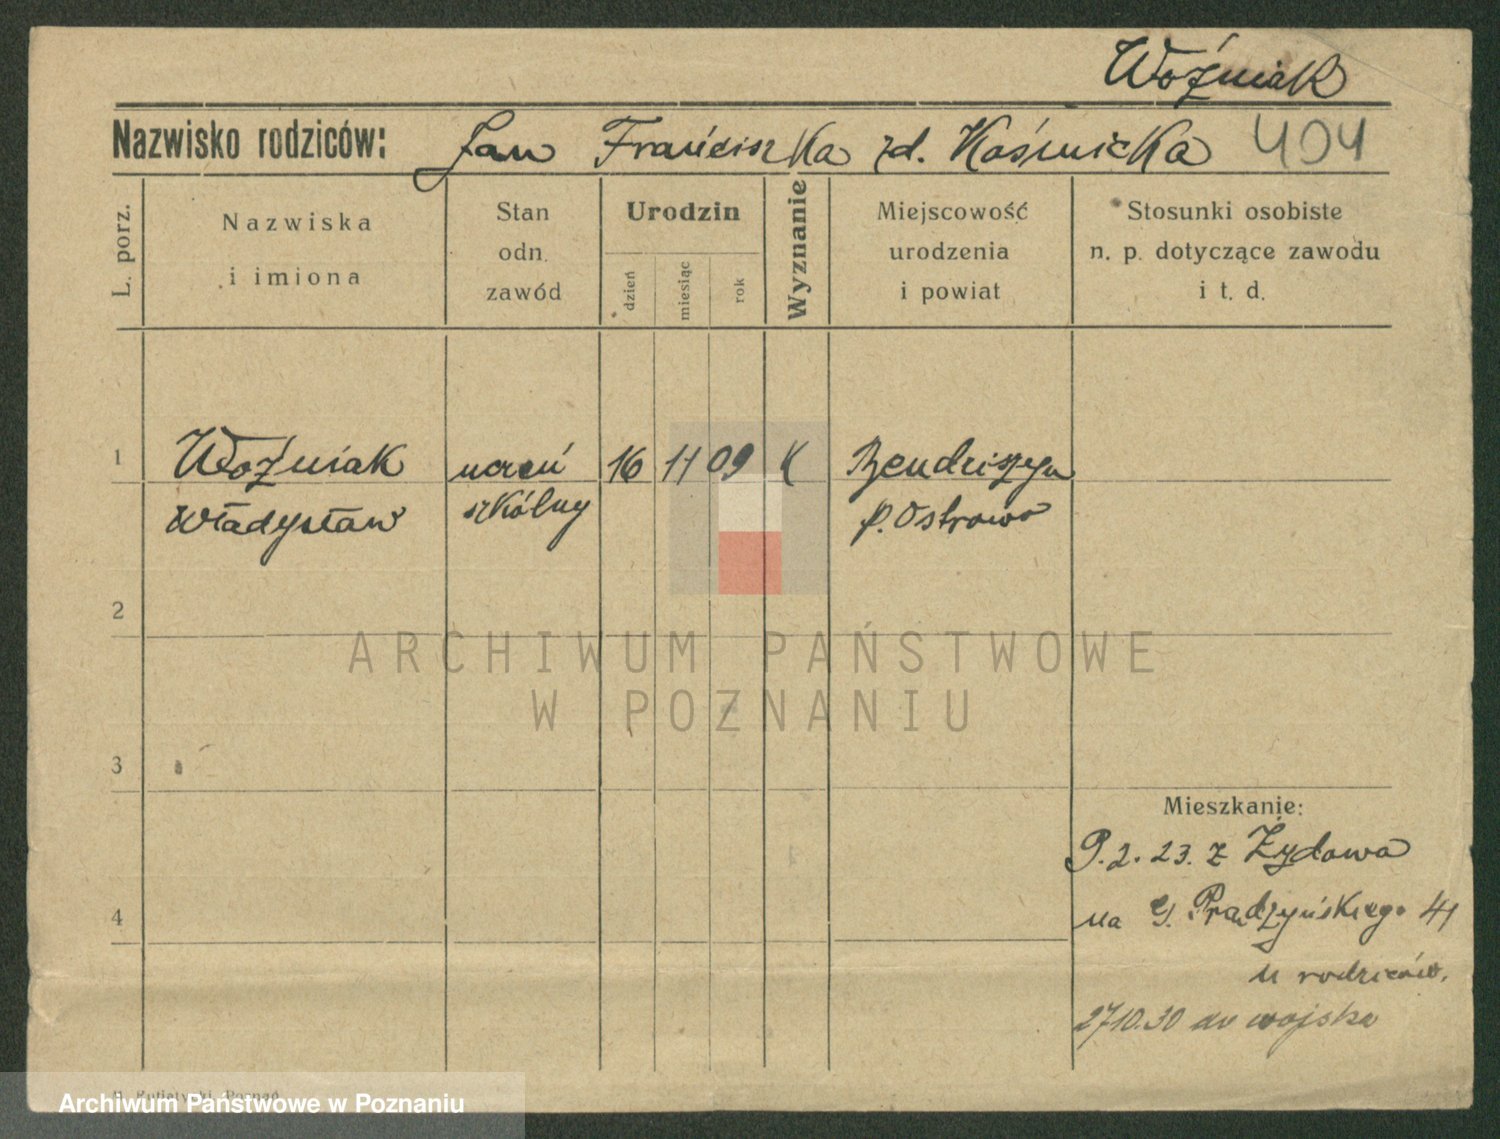 Woźniak
Nazwisko rodziców: Jan Franciszka zd. Kośnicka 404
L. porz.
Nazwiska
i imiona
Stan
odn.
zawód
Urodzin
dzień
miesiąc
rok
Wyznanie
Miejscowość
urodzenia
i powiat
Stosunki osobiste
n. p. dotyczące zawodu
i t. d.
1 Woźniak uczeń 16 11 09 K
Władysław szkólny p. Ostrowo
2
3
4
Mieszkanie:
P. 2. 23. z Żydowa
na G. Prądzyńskiego 41
u rodziców.
27.10.30 do wojska
ARCHIWUM PAŃSTWOWE
W POZNANIU
Archiwum Państwowe w Poznaniu